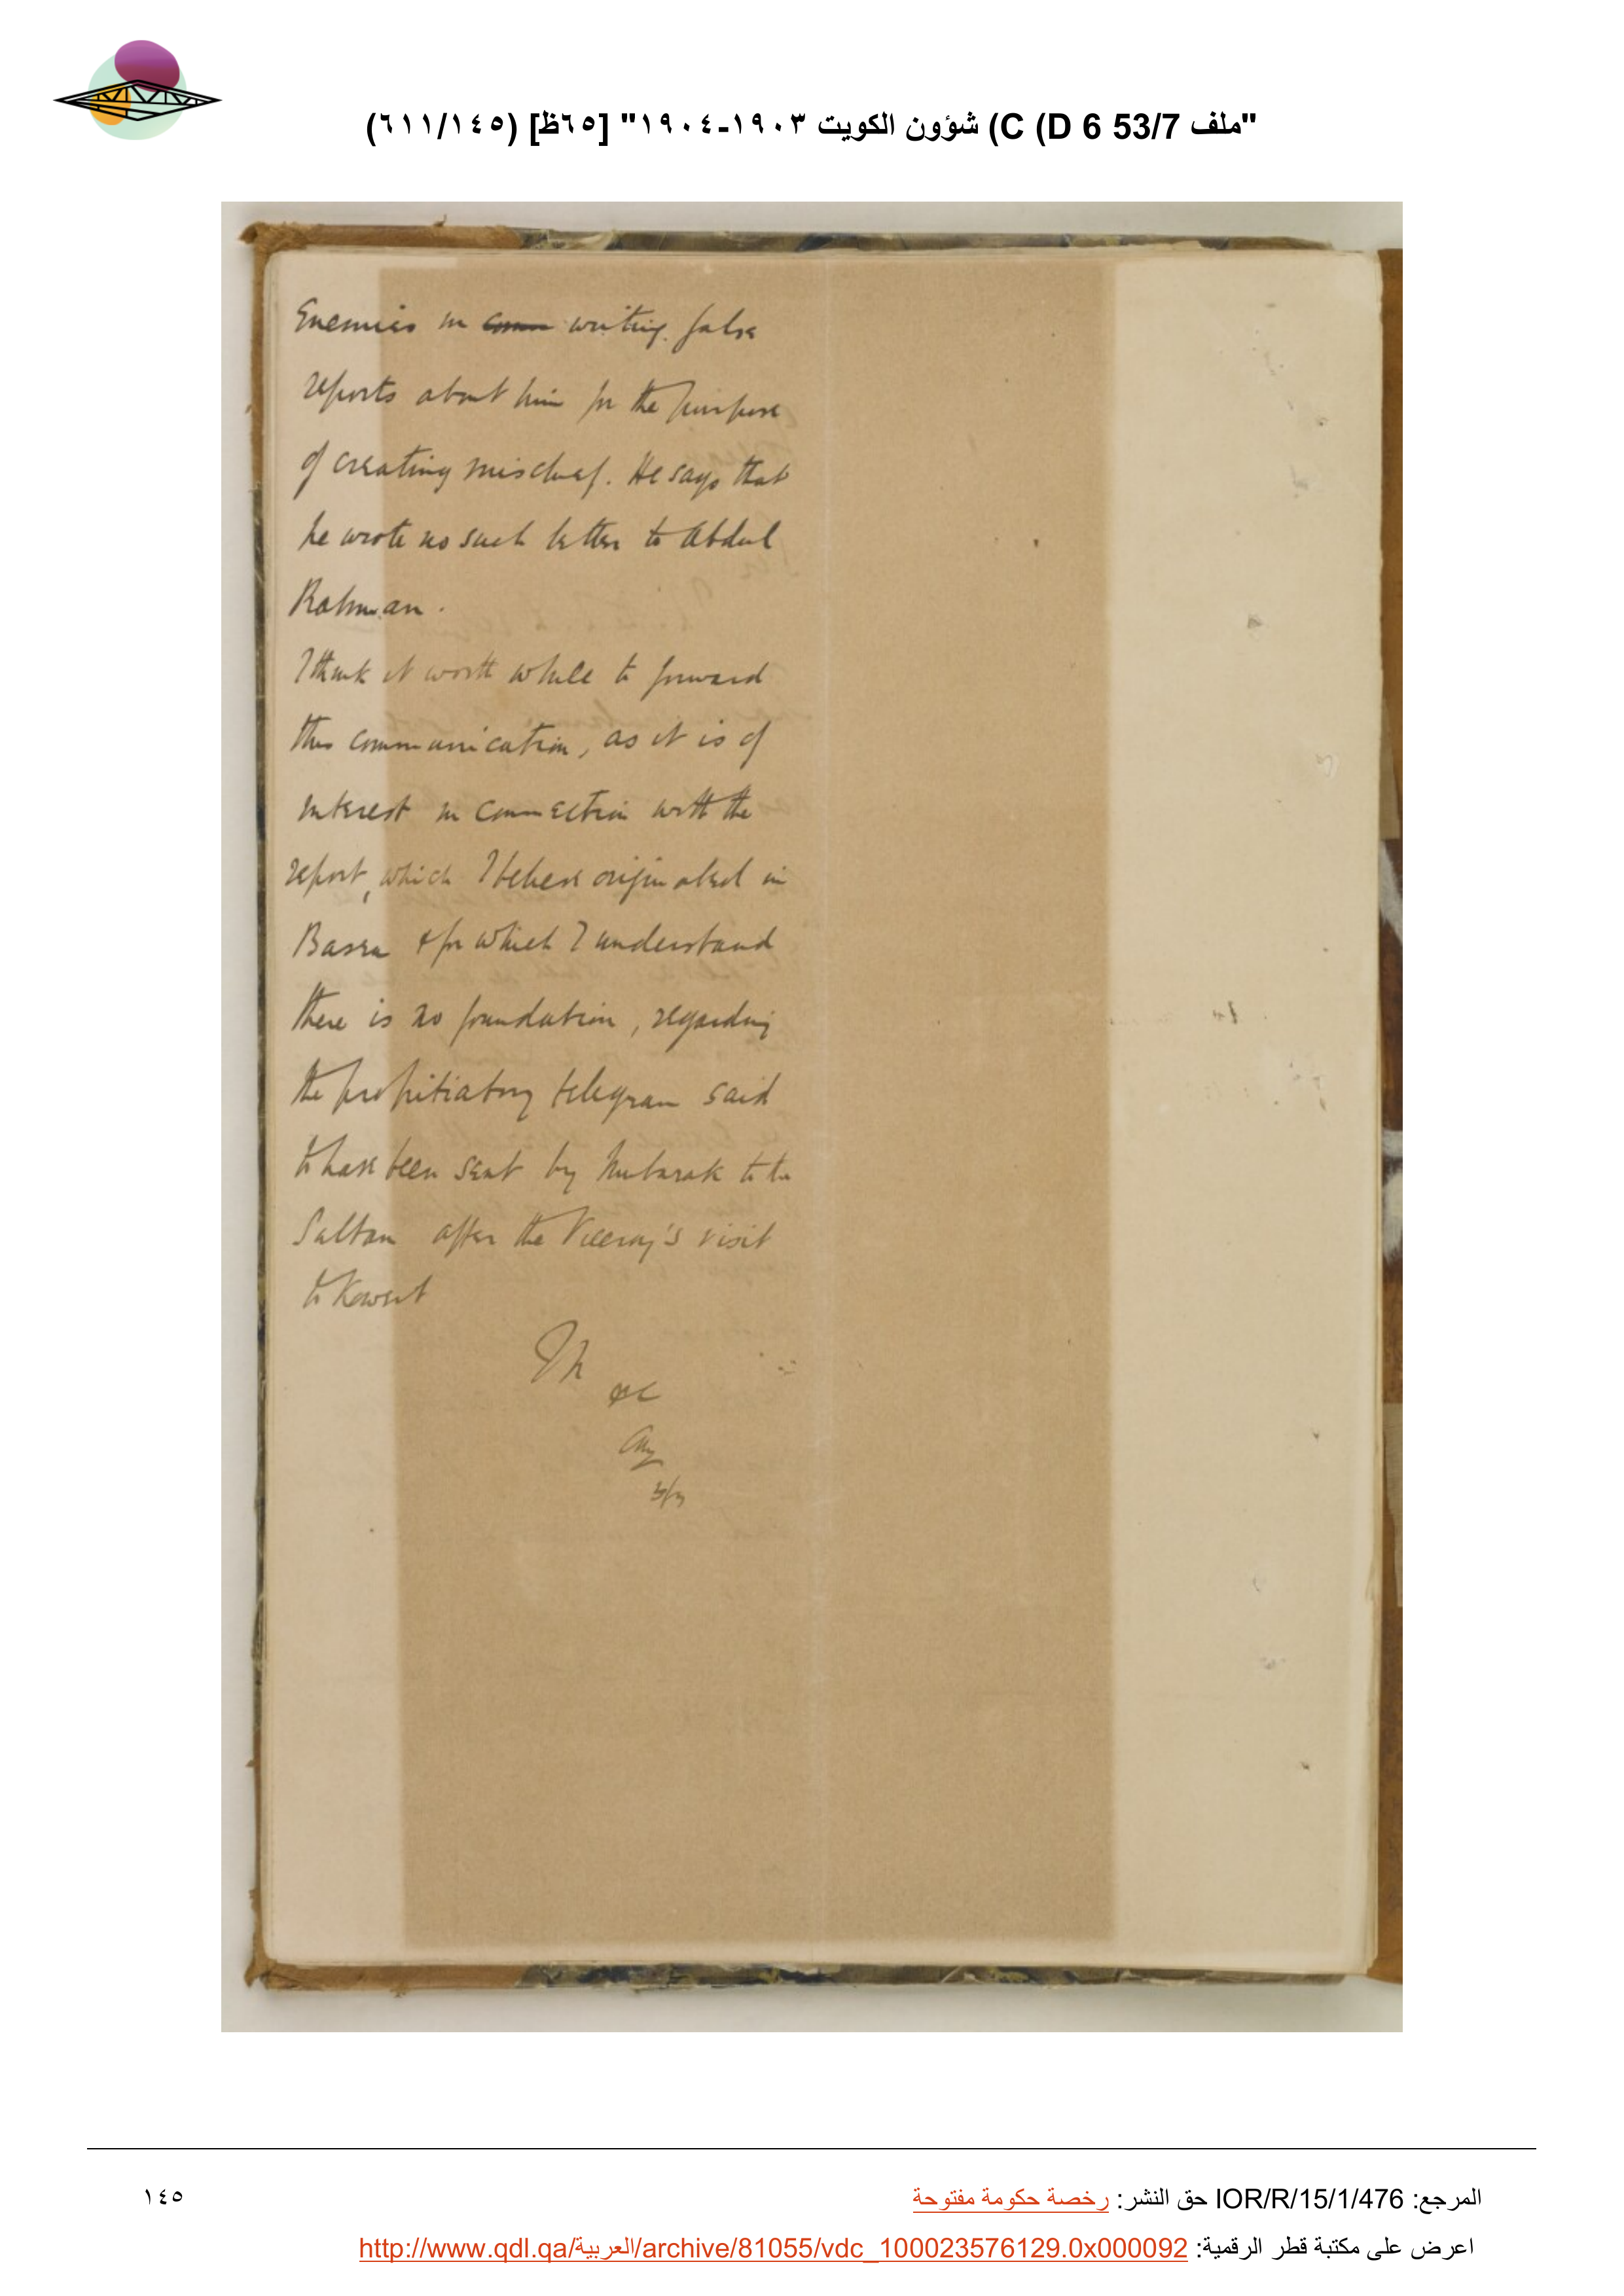 "ملف 53/7 D 6) C) شؤون الكويت ١٩٠٣-١٩٠٤" [٦٥ظ] (٦١١/١٤٥)
Enemies in writing false
reports about him for the purpose
of creating mischief. He says that
he wrote no such letter to Abdul
Rahman.
I think it worth while to forward
this communication, as it is of
interest in connection with the
report, which I believe originated in
Basra & for which I understand
there is no foundation, regarding
the propitiatory telegram said
to have been sent by Mubarak to the
Sultan after the Viceroy's visit
to Koweit
المرجع: IOR/R/15/1/476 حق النشر: رخصة حكومة مفتوحة
١٤٥
اعرض على مكتبة قطر الرقمية: http://www.qdl.qa/العربية/archive/81055/vdc_100023576129.0x000092